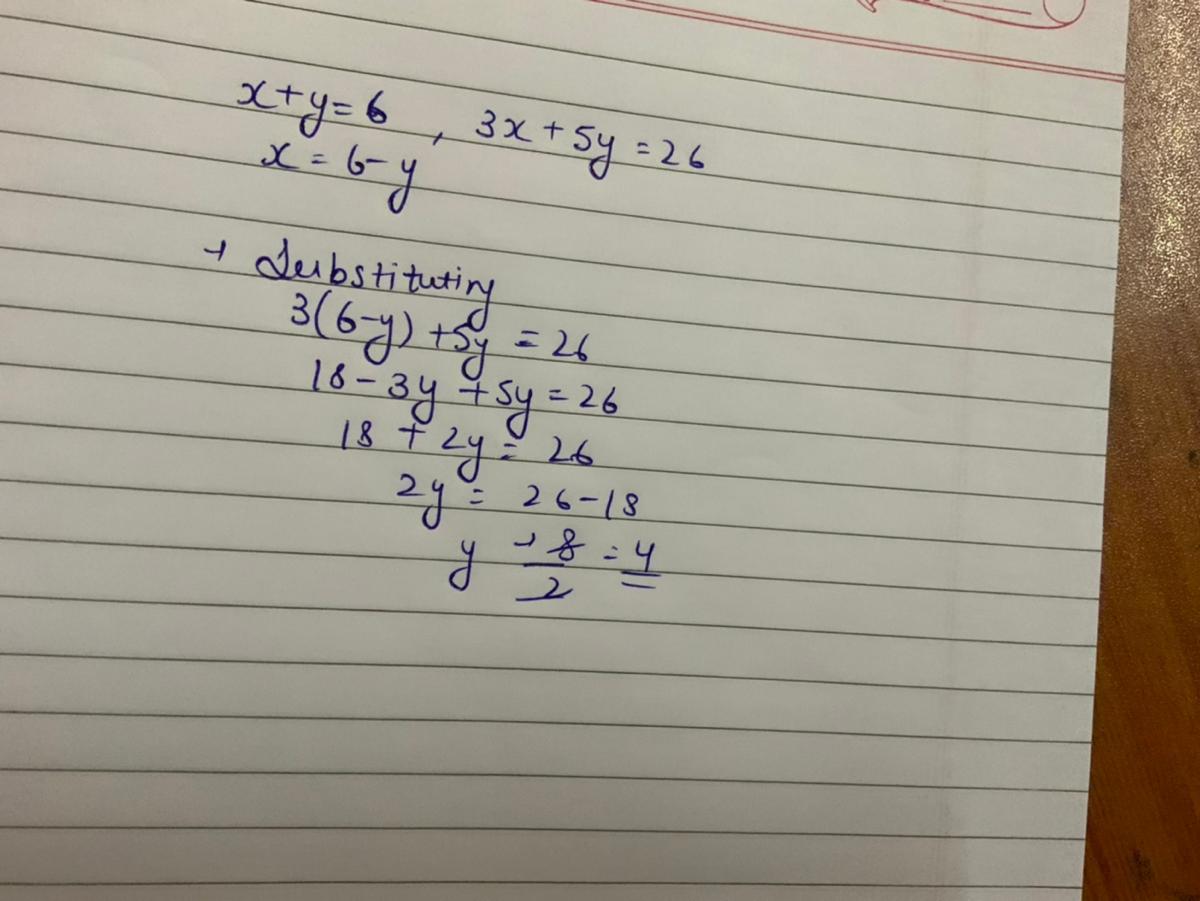 x+y=6 , 3x+5y=26
x=6-y
→ Substituting
3(6-y)+5y=26
18-3y+5y=26
18+2y=26
2y=26-18
y → 8/2 = 4